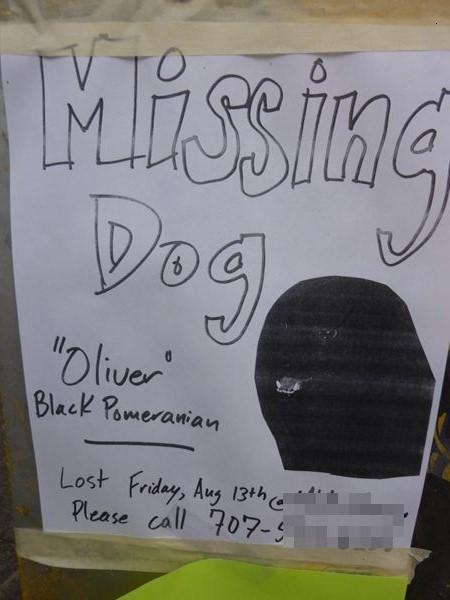 Missing
Dog
"Oliver"
Black Pomeranian
Lost Friday, Aug 13th @
Please call 707-